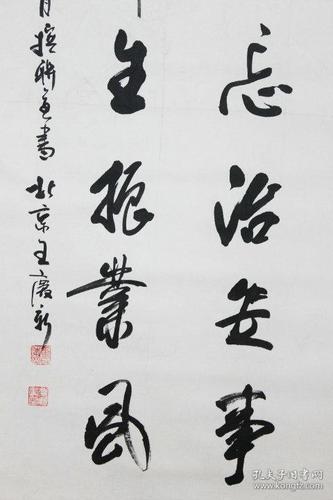 忘治事
生振業風
月撰聯並書 北京王慶新
孔夫子旧书网
www.kongfz.com